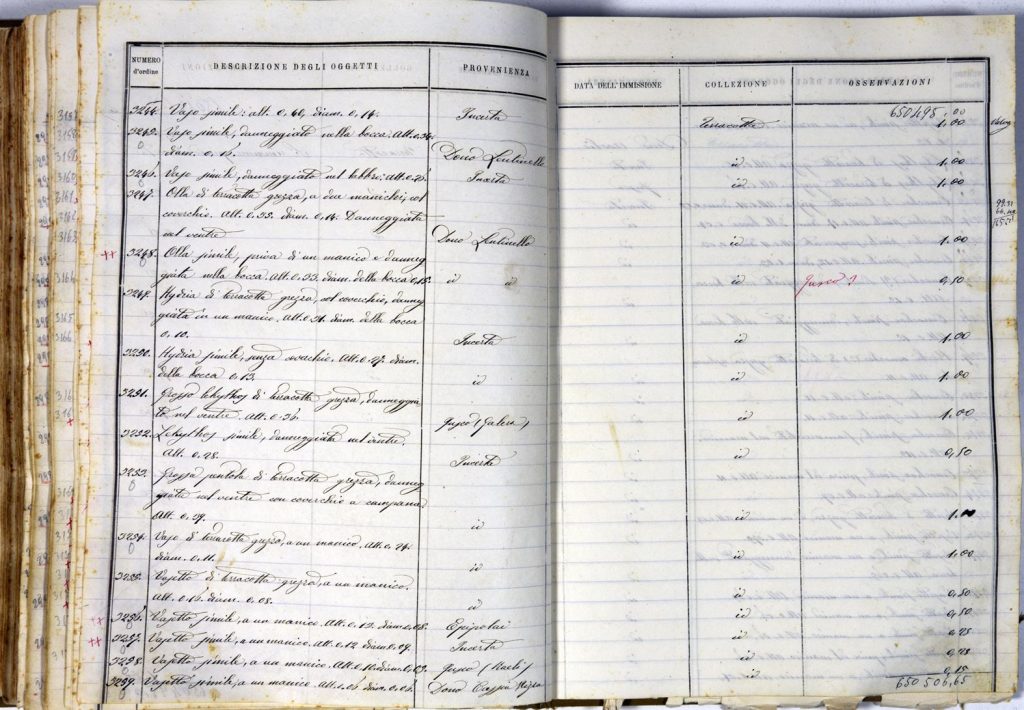 NUMERO d'ordine
DESCRIZIONE DEGLI OGGETTI
PROVENIENZA
DATA DELL'IMMISSIONE
COLLEZIONE
OSSERVAZIONI
650495,00
3244. Vaso simile: alt. 0,40, diam. 0,14. Incerta Terracotte 1,00
3245. Vaso simile, danneggiato nella bocca. Alt. 0,34.
diam. 0,15. Dono Lentinello id 1,00
3246. Vaso simile, danneggiato nel labbro. Alt. 0,25. Incerta id 1,00
3247. Olla di terracotta grezza, a due manichi, col
coverchio. Alt. 0,33. diam. 0,14. Danneggiata
nel ventre Dono Lentinello id 1,00
++ 3248. Olla simile, priva di un manico e danneg
giata nella bocca. Alt. 0,33. diam. della bocca 0,15. id id id Gusco? 0,50
3249. Hydria di terracotta grezza, col coverchio, danneg
giata in un manico. Alt. 0,31. diam. della bocca
0,10. Incerta id 1.00
3250. Hydria simile, senza coverchio. Alt. 0,27. diam.
della bocca 0,13. id id 1,00
3251. Grosso lekythos di terracotta grezza, danneggia
to nel ventre. Alt. 0,36. (Galera) id 1,00
3252. Lekythos simile, danneggiata nel ventre.
Alt. 0,28. Incerta id 0,50
3253. Grossa pentola di terracotta grezza, danneg
giata nel ventre con coverchio a campana
Alt. 0,29. id id 1.00
3254. Vaso di terracotta grezza, a un manico. Alt. 0,24.
diam. 0,11. id id 1,00
3255. Vasetto di terracotta grezza, a un manico.
Alt. 0,16. diam. 0,08. id id 0,50
++ 3256. Vasetto simile, a un manico. Alt. 0,13. diam. 0,08. Epipolai id 0,50
++ 3257. Vasetto simile, a un manico. Alt. 0,12 diam. 0,09. Incerta id 0,25
3258. Vasetto simile, a un manico. Alt. 0,10. diam. 0,09. id 0,25
3259. Vasetto simile, a un manico. Alt. 0,06 diam. 0,06. Dono id 0,15
650506,65